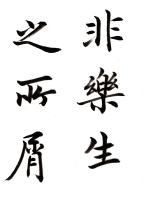 非樂生
之所屑